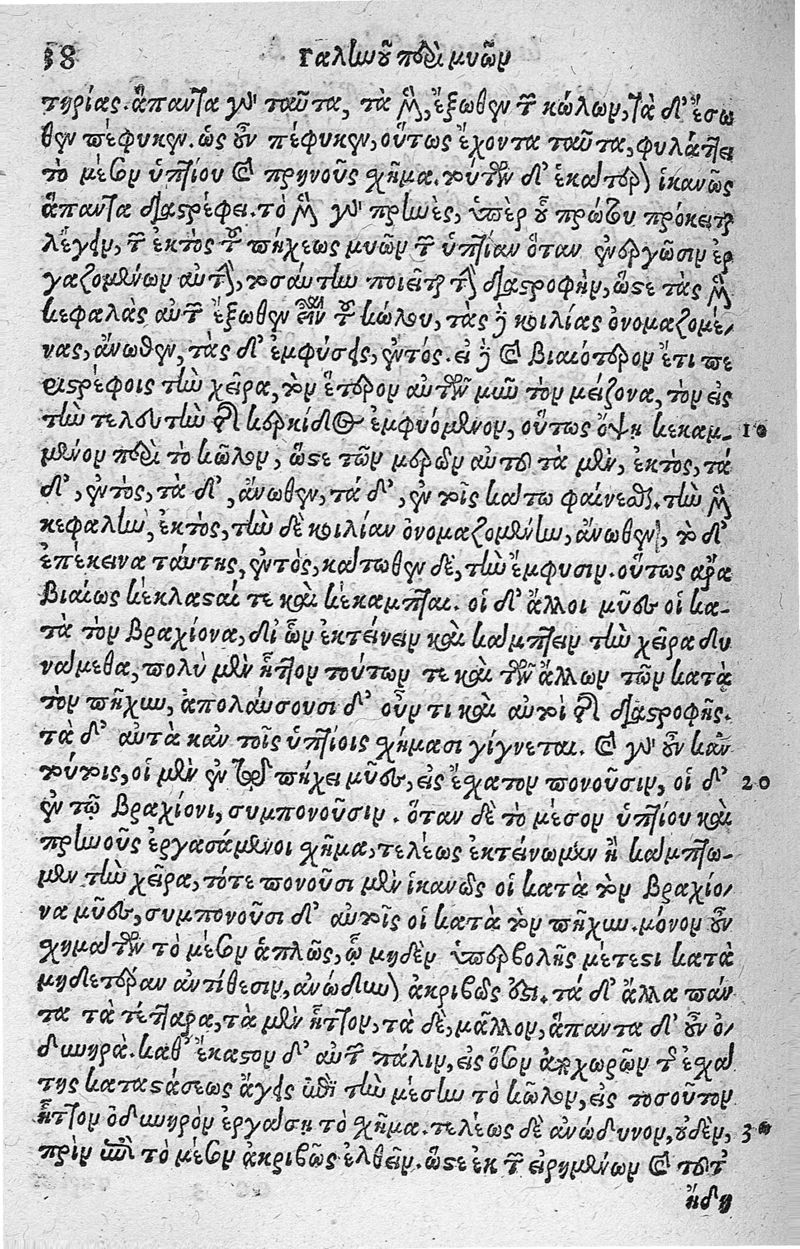 38 Γαλίωοῦ περὶ μυῶν
τηρίας. ἅπαντα γὰρ ταῦτα, τὰ μὲν, ἔξωθεν τῶν κώλων, τὰ δ' ἔσω
θεν πέφυκεν. ὡς οὖν πέφυκεν, οὕτως ἔχοντα ταῦτα, φυλάττει
τὸ μέσον ὑπτίου καὶ πρηνοῦς σχῆμα. τούτων δ' ἑκάτερον ἱκανῶς
ἅπαντα διαστρέφει. τὸ μὲν γὰρ πρηνὲς, ὑπὲρ οὗ πρώτου πρόκειται
λέγειν, τῶν ἐκτὸς τοῦ πήχεως μυῶν τῶν ὑπτίαν ὅταν ἐνεργῶσιν ἐρ
γαζομένων αὐτὴν, τοσαύτην ποιεῖται τὴν διαστροφὴν, ὥστε τὰς μὲν
κεφαλὰς αὐτῶν ἔξωθεν εἶναι τοῦ κώλου, τὰς δὲ κοιλίας ὀνομαζομέ-
νας, ἄνωθεν, τὰς δ' ἐμφύσεις, ἐντός. εἰ δὲ καὶ βιαιότερον ἔτι πε
ριστρέφοις τὴν χεῖρα, τὸν ἕτερον αὐτῶν μυῶν τὸν μείζονα, τὸν εἰς
τὴν τελευτὴν τῆς κερκίδος ἐμφυόμενον, οὕτως ὄψῃ κεκαμ- 10
μένον περὶ τὸ κῶλον, ὥστε τῶν μερῶν αὐτοῦ τὰ μὲν, ἐκτὸς, τὰ
δ', ἐντὸς, τὰ δ', ἄνωθεν, τὰ δ', ἐν τοῖς κάτω φαίνεσθαι. τὴν μὲν
κεφαλὴν, ἐκτὸς, τὴν δὲ κοιλίαν ὀνομαζομένην, ἄνωθεν, τὸ δ'
ἐπέκεινα ταύτης, ἐντὸς, κάτωθεν δὲ, τὴν ἔμφυσιν. οὕτως ἄρα
βιαίως κέκλασταί τε καὶ κέκαμπται. οἱ δ' ἄλλοι μύες οἱ κα-
τὰ τὸν βραχίονα, δι' ὧν ἐκτείνειν καὶ κάμπτειν τὴν χεῖρα δυ
νάμεθα, πολὺ μὲν ἧττον τούτων τε καὶ τῶν ἄλλων τῶν κατὰ
τὸν πῆχυν, ἀπολαύσουσι δ' οὖν τι καὶ αὐτοὶ τῆς διαστροφῆς.
τὰ δ' αὐτὰ κἀν τοῖς ὑπτίοις σχήμασι γίγνεται. καὶ γὰρ οὖν κἀν
τούτοις, οἱ μὲν ἐν τῷ πήχει μύες, εἰς ἔσχατον πονοῦσιν, οἱ δ' 20
ἐν τῷ βραχίονι, συμπονοῦσιν. ὅταν δὲ τὸ μέσον ὑπτίου καὶ
πρηνοῦς ἐργασάμενοι σχῆμα, τελέως ἐκτείνωμεν ἢ κάμπτω-
μεν τὴν χεῖρα, τότε πονοῦσι μὲν ἱκανῶς οἱ κατὰ τὸν βραχίο-
να μύες, συμπονοῦσι δ' αὐτοῖς οἱ κατὰ τὸν πῆχυν. μόνον οὖν
σχημάτων τὸ μέσον ἁπλῶς, ᾧ μηδὲν ὑπερβολῆς μέτεστι κατὰ
μηδετέραν ἀντίθεσιν, ἀνώδυνον ἀκριβῶς ἐστι. τὰ δ' ἄλλα πάν
τα τὰ τέτταρα, τὰ μὲν ἧττον, τὰ δὲ, μᾶλλον, ἅπαντα δ' οὖν ὀ-
δυνηρά. καθ' ἕκαστον δ' αὐτῶν πάλιν, εἰς ὅσον ἀποχωρῶν τῆς ἐσχά
της καταστάσεως ἄγεις ἐπὶ τὴν μέσην τὸ κῶλον, εἰς τοσοῦτον
ἧττον ὀδυνηρὸν ἐργάσῃ τὸ σχῆμα. τελέως δὲ ἀνώδυνον, οὐδὲν, 30
πρὶν ἐπὶ τὸ μέσον ἀκριβῶς ἐλθεῖν. ὥστε ἐκ τῶν εἰρημένων καὶ τοῦτ'
ἤδη